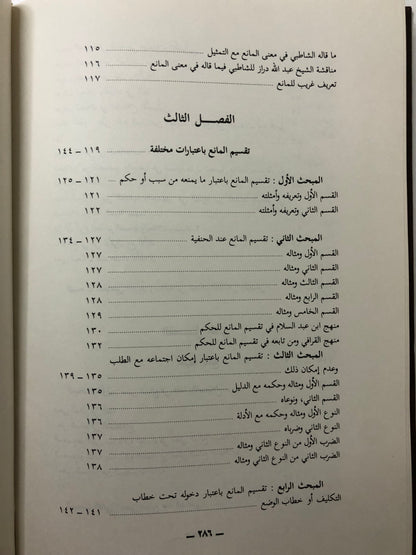 ما قاله الشاطبي في معنى المانع مع التمثيل ..... ١١٥
مناقشة الشيخ عبد الله دراز للشاطبي فيما قاله في معنى المانع ..... ١١٦
تعريف غريب للمانع ..... ١١٧
الفصل الثالث
تقسيم المانع باعتبارات مختلفة ..... ١١٩ ــ ١٤٤
المبحث الأول : تقسيم المانع باعتبار ما يمنعه من سبب أو حكم ..... ١٢١ ــ ١٢٥
القسم الأول وتعريفه وأمثلته ..... ١٢١
القسم الثاني وتعريفه وأمثلته ..... ١٢٢
المبحث الثاني : تقسيم المانع عند الحنفية ..... ١٢٧ ــ ١٣٤
القسم الأول ومثاله ..... ١٢٧
القسم الثاني ومثاله ..... ١٢٧
القسم الثالث ومثاله ..... ١٢٨
القسم الرابع ومثاله ..... ١٢٨
القسم الخامس ومثاله ..... ١٢٩
منهج ابن عبد السلام في تقسيم المانع للحكم ..... ١٣٠
منهج القرافي ومن تابعه في تقسيم المانع للحكم ..... ١٣٢
المبحث الثالث : تقسيم المانع باعتبار إمكان اجتماعه مع الطلب
وعدم إمكان ذلك ..... ١٣٥ ــ ١٣٩
القسم الأول ومثاله وحكمه مع الدليل ..... ١٣٥
القسم الثاني، ونوعاه ..... ١٣٦
النوع الأول ومثاله وحكمه مع الأدلة ..... ١٣٦
النوع الثاني وضرباه ..... ١٣٧
الضرب الأول من النوع الثاني ومثاله ..... ١٣٧
الضرب الثاني من النوع الثاني ومثاله ..... ١٣٨
المبحث الرابع : تقسيم المانع باعتبار دخوله تحت خطاب
التكليف أو خطاب الوضع ..... ١٤١ ــ ١٤٢
ــ ٢٨٦ ــ